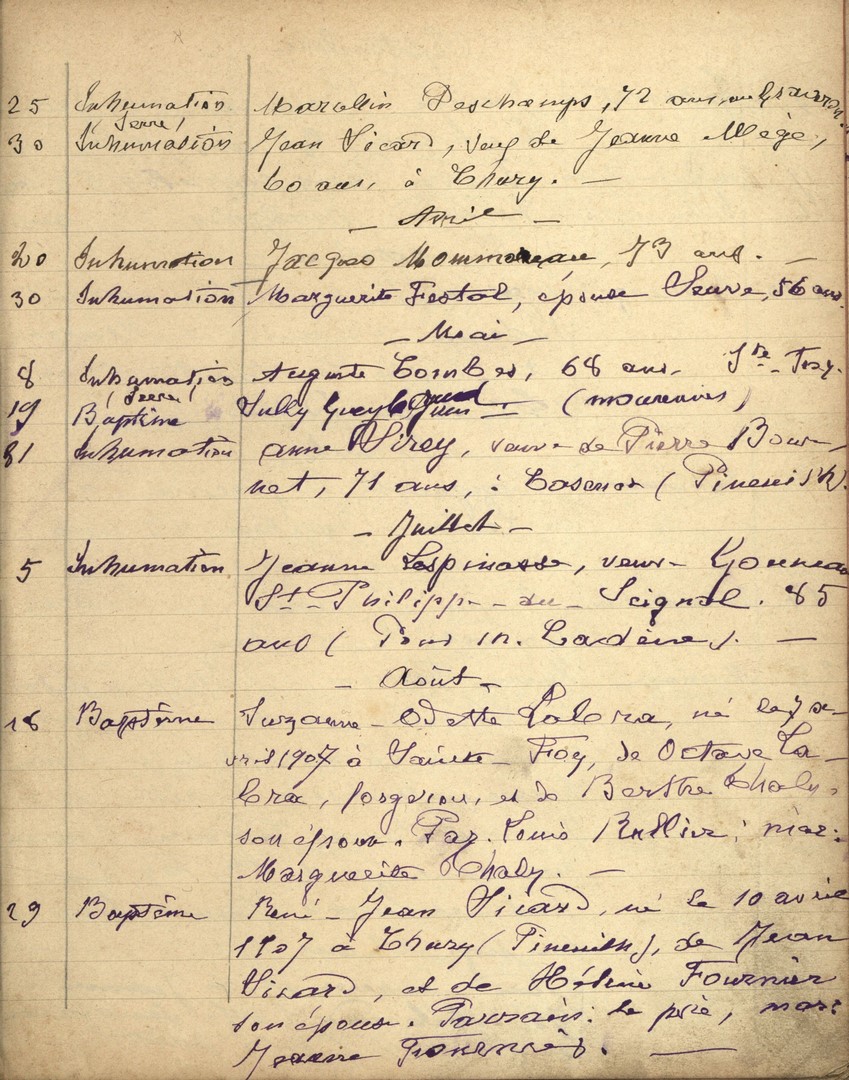 25 Inhumation Marcellin Deschamps, 72 ans, au
30 Inhumation (Serre) Jean Sicard, veuf de Jeanne Mège,
60 ans, à Thury. —
— Avril —
20 Inhumation Jacques Mommereau, 73 ans. —
30 Inhumation Marguerite Festal, épouse Seuve, 56 ans.
— Mai —
8 Inhumation Auguste Combes, 68 ans. Ste-Foy.
19 Baptême (Serre) Sully (mourenes)
31 Inhumation Anne Sirey, veuve de Pierre Bour-
net, 71 ans, à (Pineuilh).
— Juillet —
5 Inhumation Jeanne Lespinasse, veuve Gonneau
St-Philippe-du-Seignal. 85
ans (Pour m. Ladeire). —
— Août —
18 Baptême Suzanne-Odette Labra, né le 7 a-
vril 1907 à Sainte-Foy, de Octave La-
bra, forgeron, et de Berthe Chaly,
son épouse. Par. Louis Rullier; mar.
Marguerite Chaly. —
29 Baptême René-Jean Sicard, né le 10 avril
1907 à Thury (Pineuilh), de Jean
Sicard, et de Hélène Fournier
son épouse. Parrain: le père, mar:
Jeanne Fournier. —